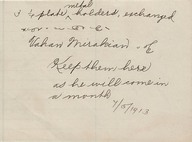 metal
plate, holders, exchanged
Vahan Merakian - E
Keep them here
as he will come in
a month
4/5/1913